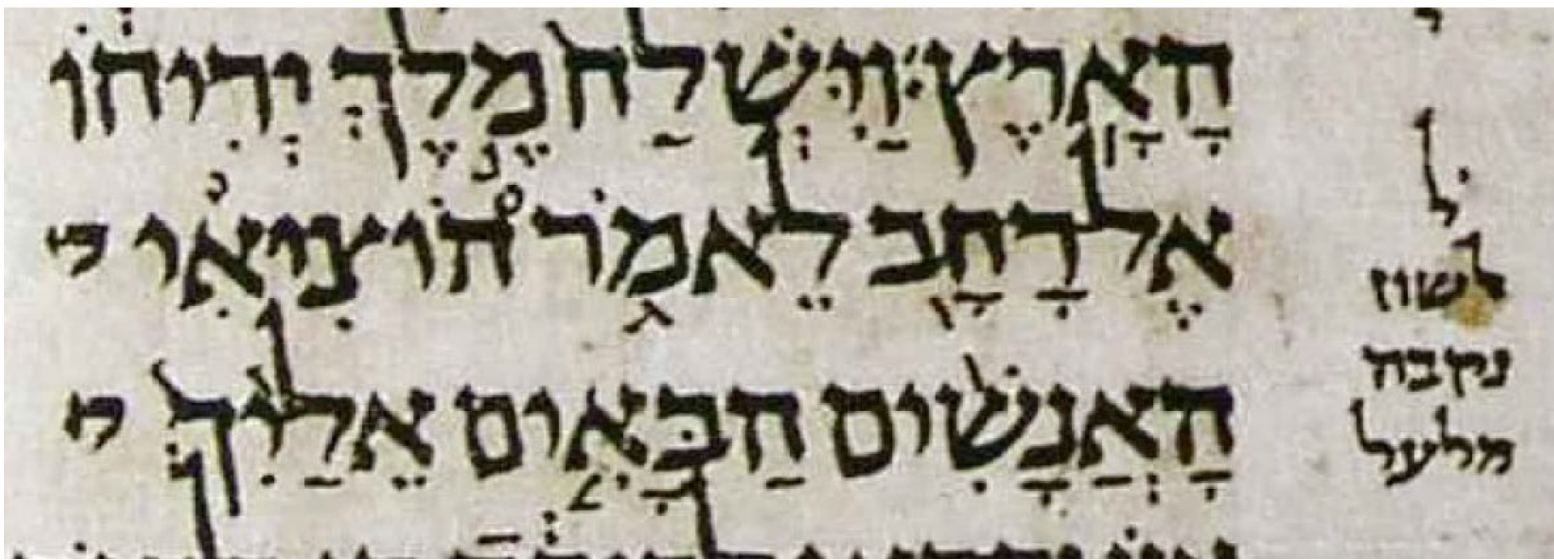 הָאָרֶץ׃ וַיִּשְׁלַח מֶלֶךְ יְרִיחוֹ
אֶל רָחָב לֵאמֹר הוֹצִיאִי
הָאֲנָשִׁים הַבָּאִים אֵלַיִךְ
ל
לשון
נקבה
מלעל